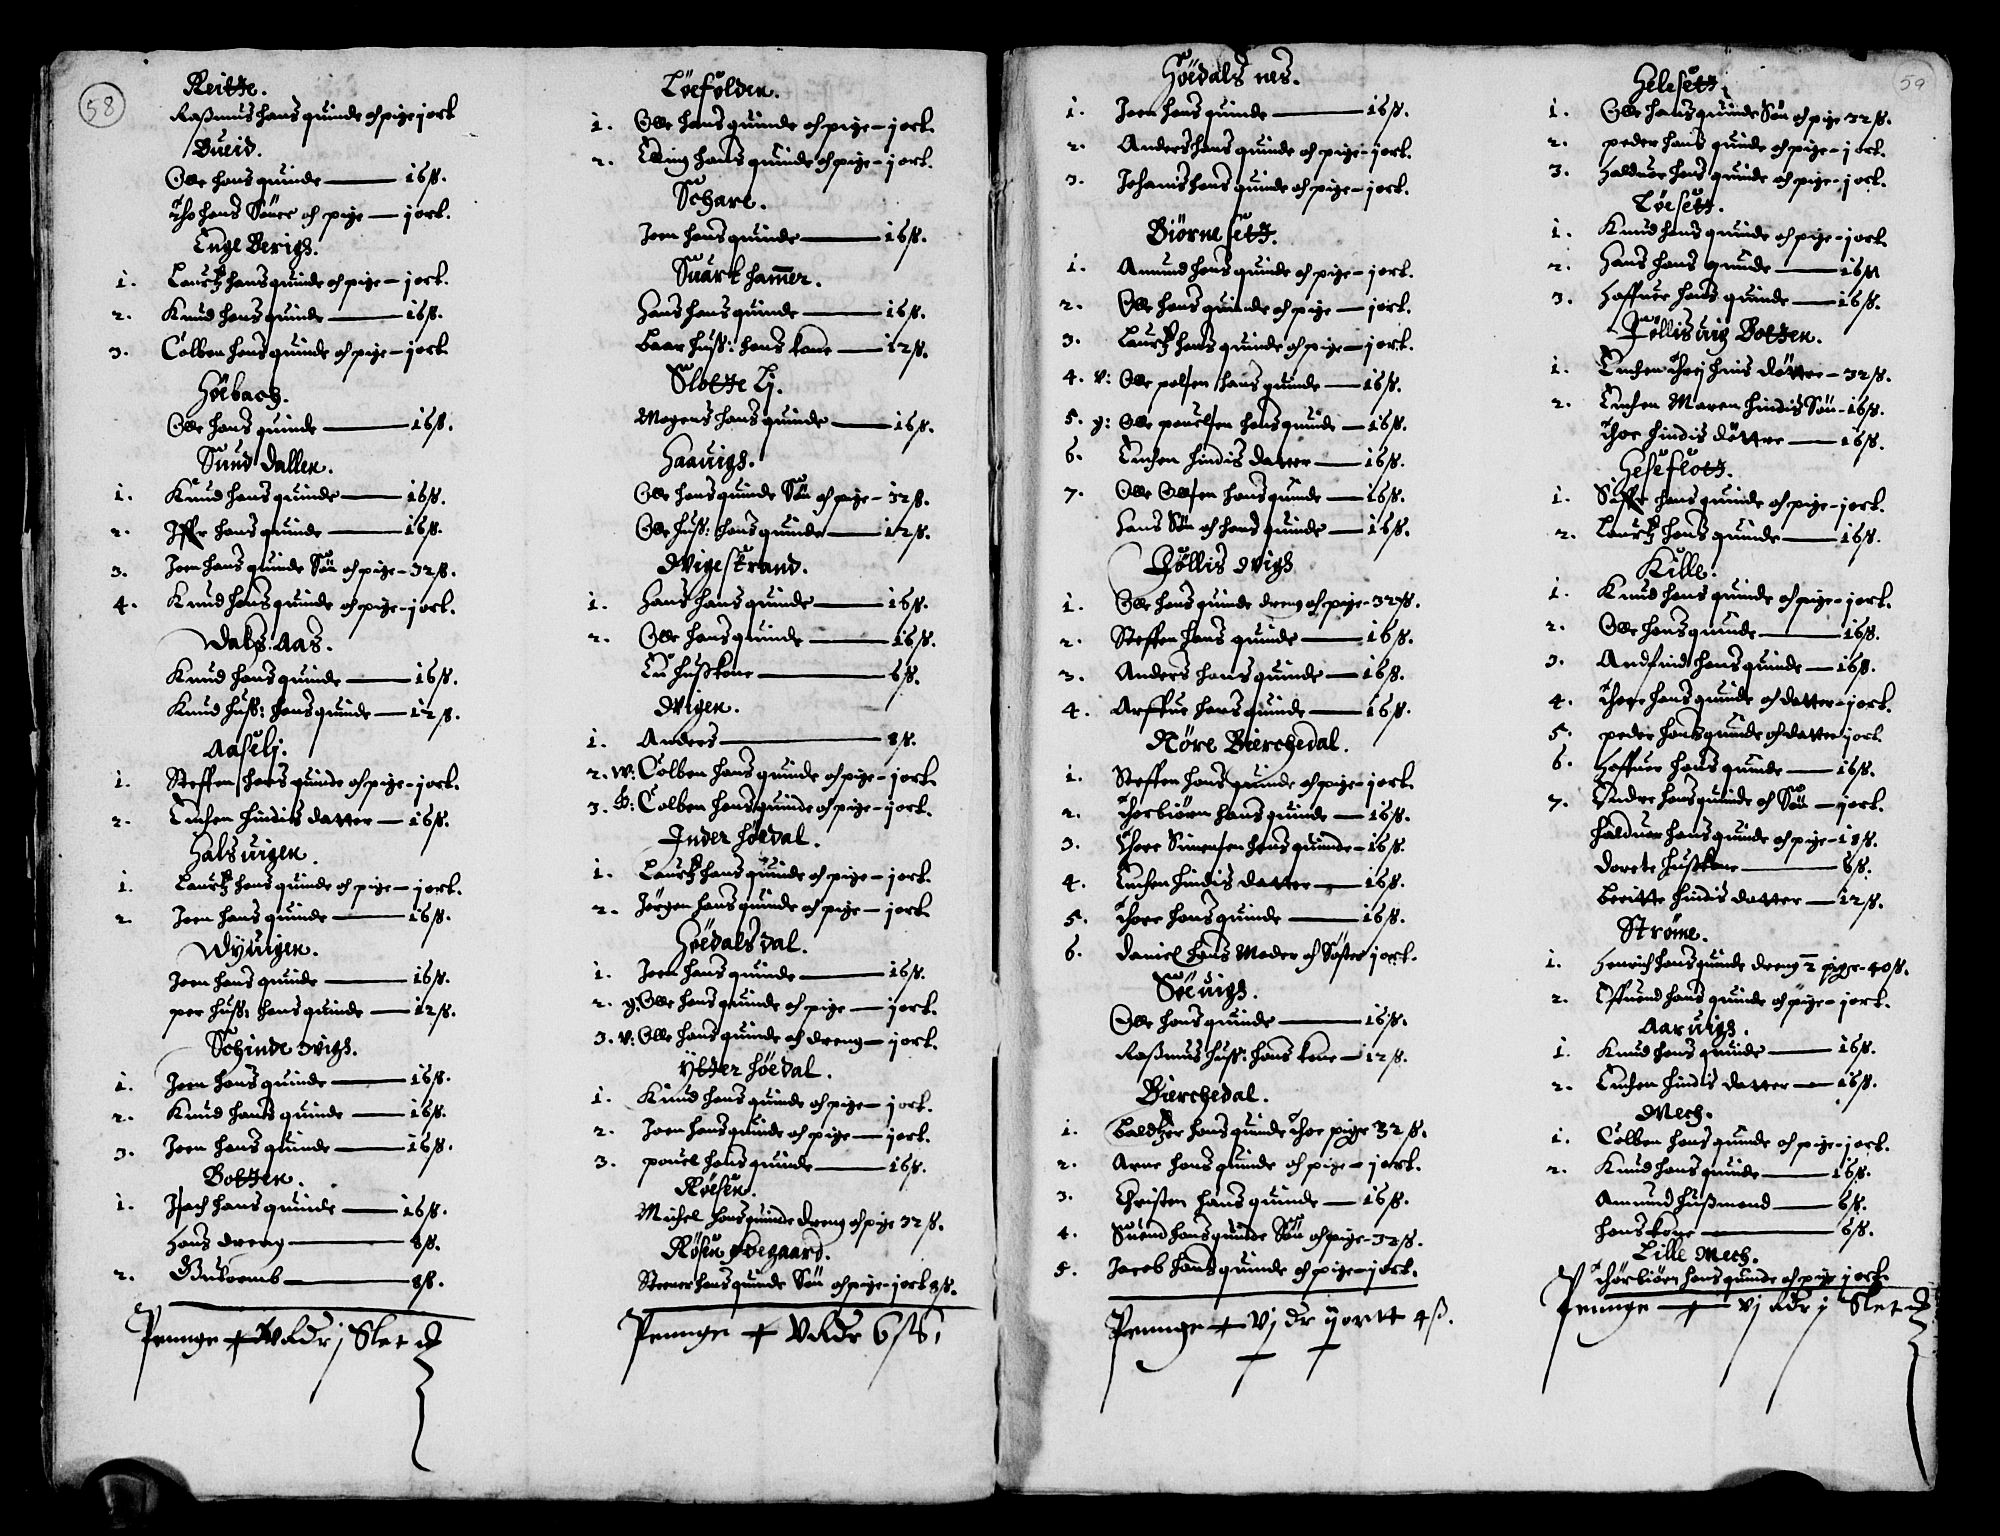 58
Reitte.
Rasmus hans quinde oh pige jort
Bueid.
Olle hans quinde — 16ß.
Tho hans Sönner oh pige — jort.
Enge Berigh.
1. Lauritz hans quinde oh pige – jort.
2. Knud hans quinde — 16ß.
3. Colben hans quinde oh pige – jort.
Höebach.
Olle hans quinde — 16ß.
Sund dallen.
1. Knud hans quinde — 16ß.
2. Iffr hans quinde — 16ß.
3. Joen hans quinde Sön oh pige – 32ß.
4. Knud hans quinde oh pige – jort.
Dals Aas.
Knud hans quinde — 16ß.
Knud huß: hans quinde — 12ß.
Aaselj.
1. Steffen hans quinde oh pige – jort.
2. Enchen hindis datter — 16ß.
Hals uigen.
1. Lauritz hans quinde oh pige – jort.
2. Joen hans quinde — 16ß.
Wyuigen.
Joen hans quinde — 16ß.
per huß: hans quinde — 12ß.
Schinde uigh.
1. Joen hans quinde — 16ß.
2. Knud hans quinde — 16ß.
3. Joen hans quinde — 16ß.
Botten.
1. Isach hans quinde — 16ß.
hans dreng — 8ß.
2. — 8ß.
Penninge Slet
Löefolden.
1. Olle hans quinde oh pige – jort.
2. Elling hans quinde oh pige – jort.
Schare.
Joen hans quinde — 16ß.
Suart hammer.
Hans hans quinde — 16ß.
Baar huß: hans kone — 12ß.
Slotte Lj.
Mogens hans quinde — 16ß.
Haauigh.
Olle hans quinde Sön oh pige – 32ß.
Olle huß: hans quinde — 12ß.
Vigestrand.
1. Hans hans quinde — 16ß.
2. Olle hans quinde — 16ß.
En hußkone — 6ß.
Vigen.
1. Anders — 8ß.
2. W: Colben hans quinde oh pige – jort.
3. Colben hans quinde oh pige – jort.
Inder höedal.
1. Lauritz hans quinde oh pige – jort.
2. Jörgen hans quinde oh pige – jort
Höedals dal.
1. Joen hans quinde — 16ß.
2. y: Olle hans quinde oh pige – jort.
3. v: Olle hans quinde oh dreng – jort.
Ytter höedal.
1. Knud hans quinde oh pige – jort.
2. Joen hans quinde oh pige – jort.
3. pouel hans quinde — 16ß.
Röesen.
Michel hans quinde dreng oh pige 32ß.
Rösen ödegaard.
Steener hans quinde Sön oh pige – jort 8ß.
Penninge 6ß
59
Höedals nes.
1. Joen hans quinde — 16ß.
2. Anders hans quinde oh pige – jort.
3. Johanis hans quinde oh pige – jort.
Biörnesett.
1. Amund hans quinde oh pige – jort.
2. Olle hans quinde oh pige – jort.
3. Lauritz hans quinde oh pige – jort.
4. v: Olle polsen hans quinde — 16ß.
5. y: Olle pouelsen hans quinde — 16ß.
6. Enchen hindis datter — 16ß.
7. Olle Ollsen hans quinde — 16ß.
Hans Sön oh hans quinde — 16ß.
Föllis vigh
1. Olle hans quinde dreng oh pige – 32ß.
2. Steffen hans quinde — 16ß.
3. Anders hans quinde — 16ß.
4. Arffue hans quinde — 16ß.
Nöre Bierchedal.
1. Steffen hans quinde oh pige – jort.
2. Thorbiörn hans quinde — 16ß.
3. Thore Simensen hans quinde – 16ß.
4. Enchen hindis datter — 16ß.
5. Thore hans quinde — 16ß.
6. Daniel hans Moder oh Söster jort.
Söeuigh.
Olle hans quinde — 16ß.
Rasmus huß: hans kone – 12ß.
Bierchedal.
1. Baldtzer hans quinde thoe pige 32ß.
2. Arne hans quinde oh pige – jort.
3. Christen hans quinde — 16ß.
4. Suend hans quinde Sön oh pige – 32ß.
5. Jacob hans quinde oh pige – jort.
Penninge vj Dr jortt 4ß.
Helesett.
1. Olle hans quinde Sön oh pige 32ß.
2. peder hans quinde oh pige – jort.
3. Halduor hans quinde oh pige – jort.
Löesett.
1. Knud hans quinde oh pige – jort.
2. Hans hans quinde — 16ß
3. Haffuer hans quinde — 16ß.
Föllisuig Botten.
1. Enchen threj hinis döttre – 32ß.
2. Enchen Maren hindis Sön – 16ß.
thoe hindis döttre — 16ß.
Heseflott.
1. Siffr hans quinde oh pige – jort.
2. Lauritz hans quinde — 16ß.
Kille.
1. Knud hans quinde oh pige – jort.
2. Olle hans quinde — 16ß.
3. Andfind hans quinde — 16ß.
4. Thore hans quinde oh datter – jort.
5. peder hans quinde oh datter jort.
6. Haffuer hans quinde — 16ß.
7. Endre hans quinde oh Sön — jort.
halduor hans quinde oh pige – 18ß.
Dorete hußkone — 6ß.
Beritte hindis datter — 12ß.
Ströme.
1. Henrich hans quinde dreng 2 pige – 40ß.
2. Effuend hans quinde oh pige – jort.
Aaruigh.
1. Knud hans quinde — 16ß.
2. Enchen hindis datter — 16ß.
Mech.
1. Colben hans quinde oh pige – jort.
2. Knud hans quinde — 16ß.
Amund hußmand — 6ß.
hans kone — 6ß.
Lille Mech.
Thorbiörn hans quinde oh pige jort.
Penninge vj Dr j Slet